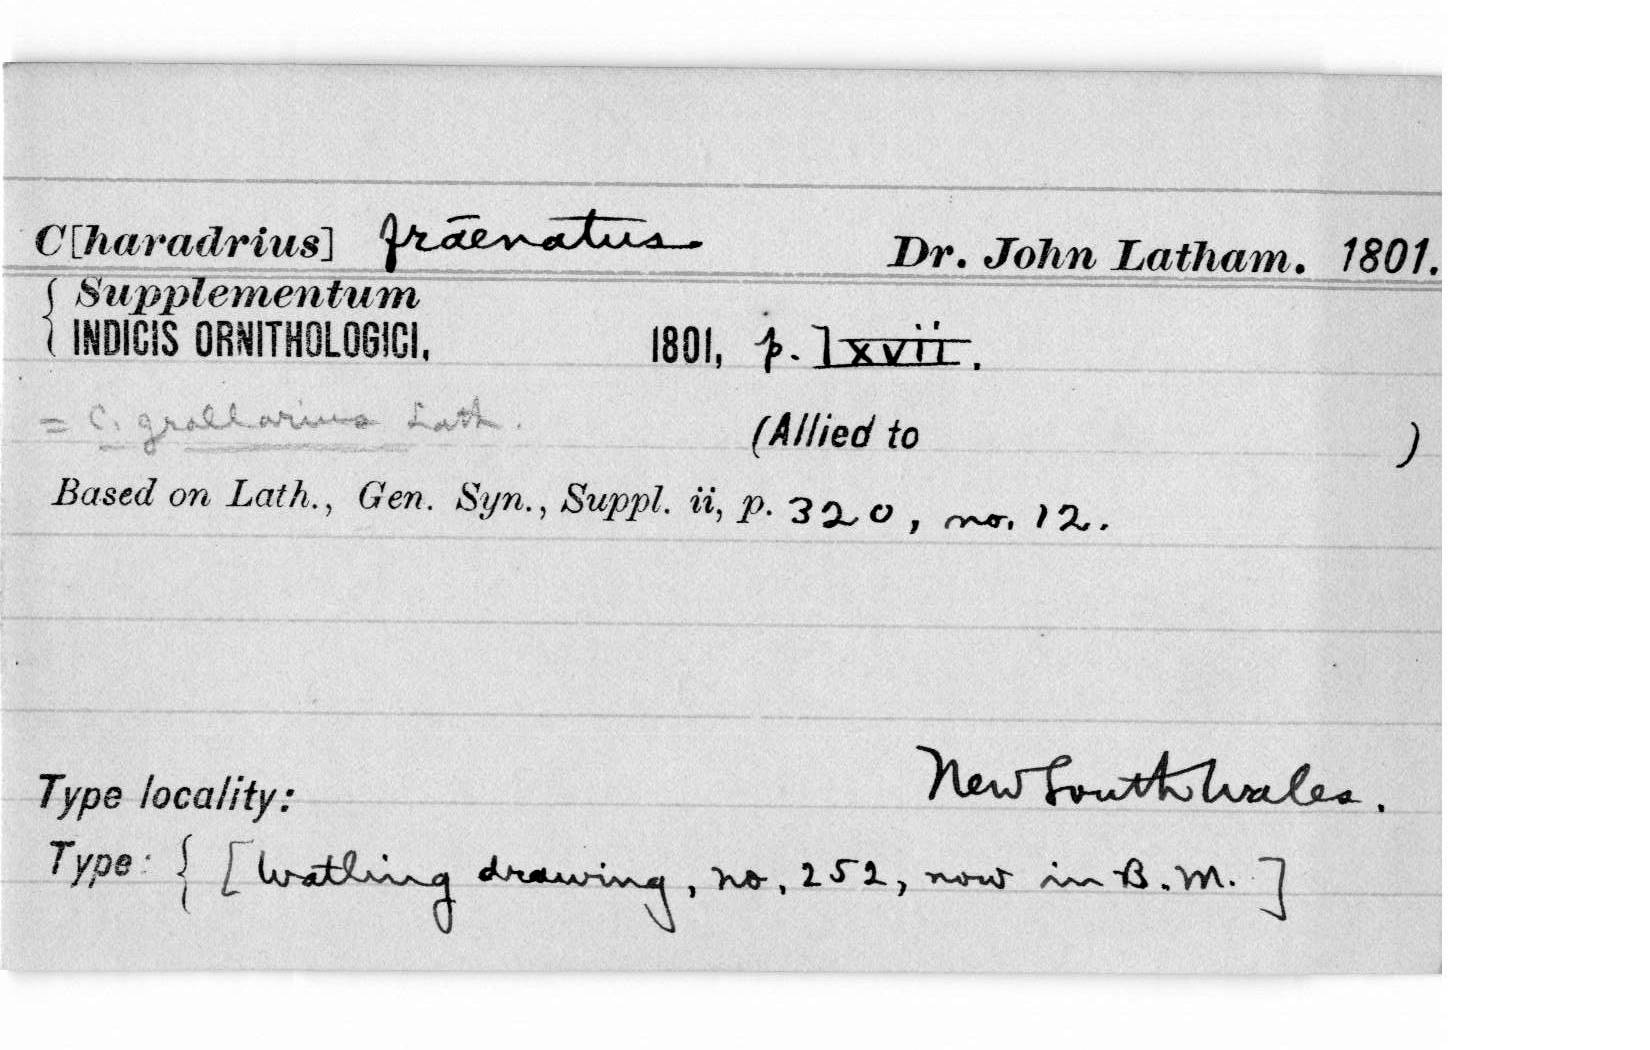 C[haradrius] fraenatus. Dr. John Latham. 1801.
{ Supplementum
INDICIS ORNITHOLOGICI, 1801, p. lxvii.
= C. grallarius Lath. (Allied to )
Based on Lath., Gen. Syn., Suppl. ii, p. 320, no. 12.
Type locality: New South Wales.
Type: { [Watling drawing, no. 252, now in B.M.]